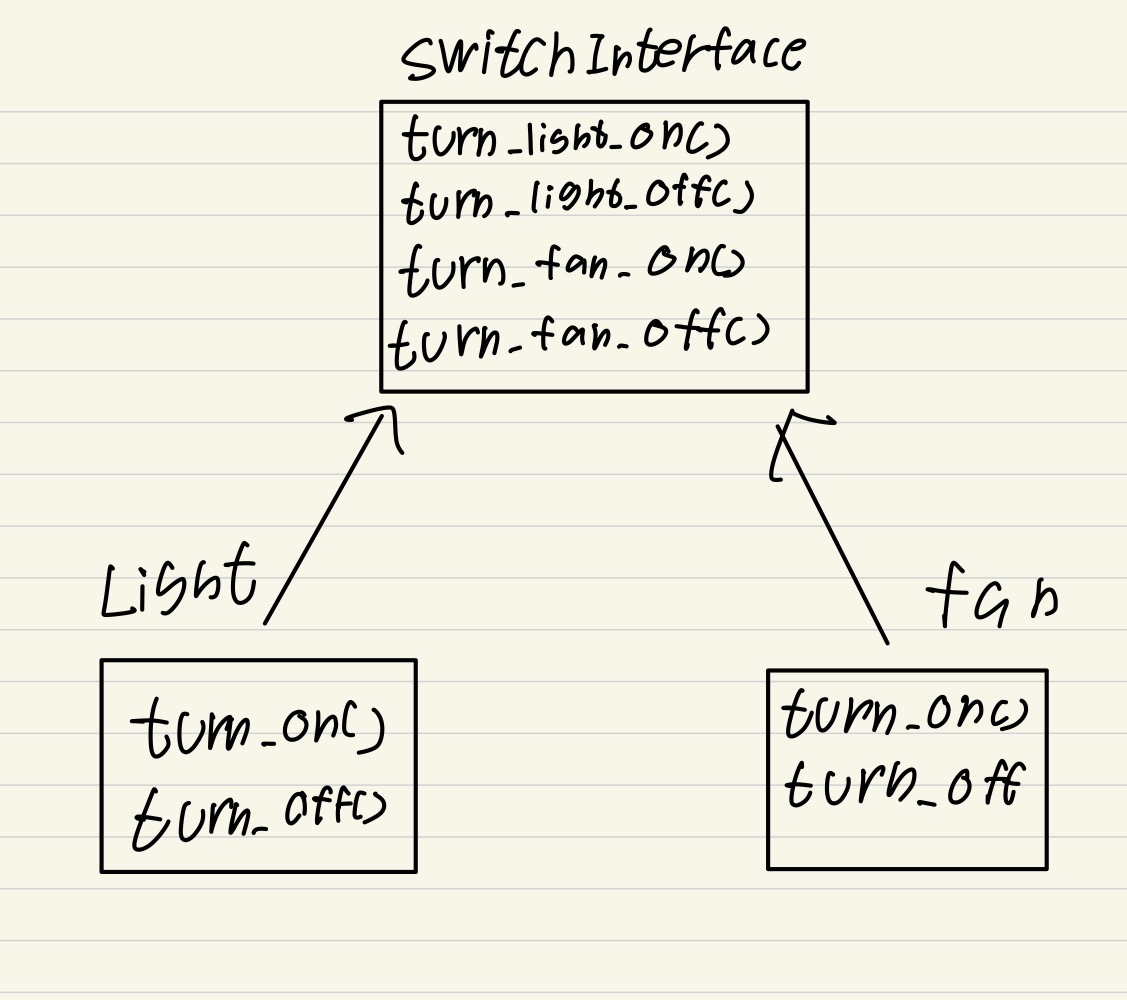 SwitchInterface
turn_light_on()
turn_light_off()
turn_fan_on()
turn_fan_off()
Light
turn_on()
turn_off()
fan
turn_on()
turn_off